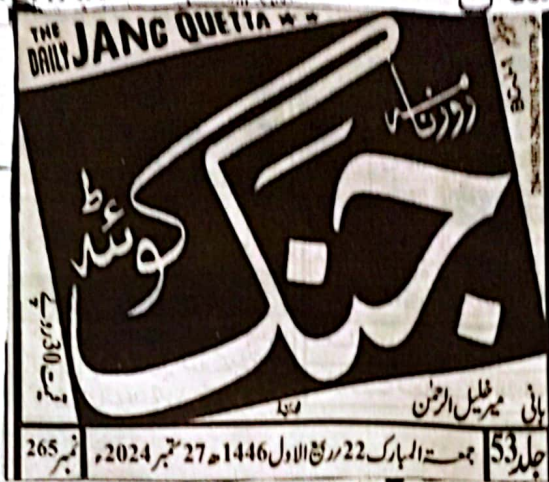 THE DAILY JANG QUETTA
روزنامہ
جنگ
کوئٹہ
قیمت 30 روپے
بانی میر خلیل الرحمٰن
جلد 53
جمعۃ المبارک 22 ربیع الاول 1446ھ 27 ستمبر 2024ء
نمبر 265